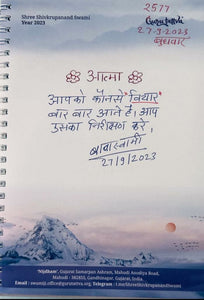 Shree Shivkrupanand Swami
Year 2023
2577
27-9-2023
बुधवार
आत्मा
आपको कौनसे विचार
बार बार आते हैं, आप
उसका निरीक्षण करे,
बाबास्वामी
27/9/2023
'Nijdham', Gujarat Samarpan Ashram, Mahudi Anodiya Road,
Mahudi - 382855, Gandhinagar, Gujarat, India
Email : swamiji.office@gurutattva.org | Telegram : t.me/ShreeShivkrupanandSwami